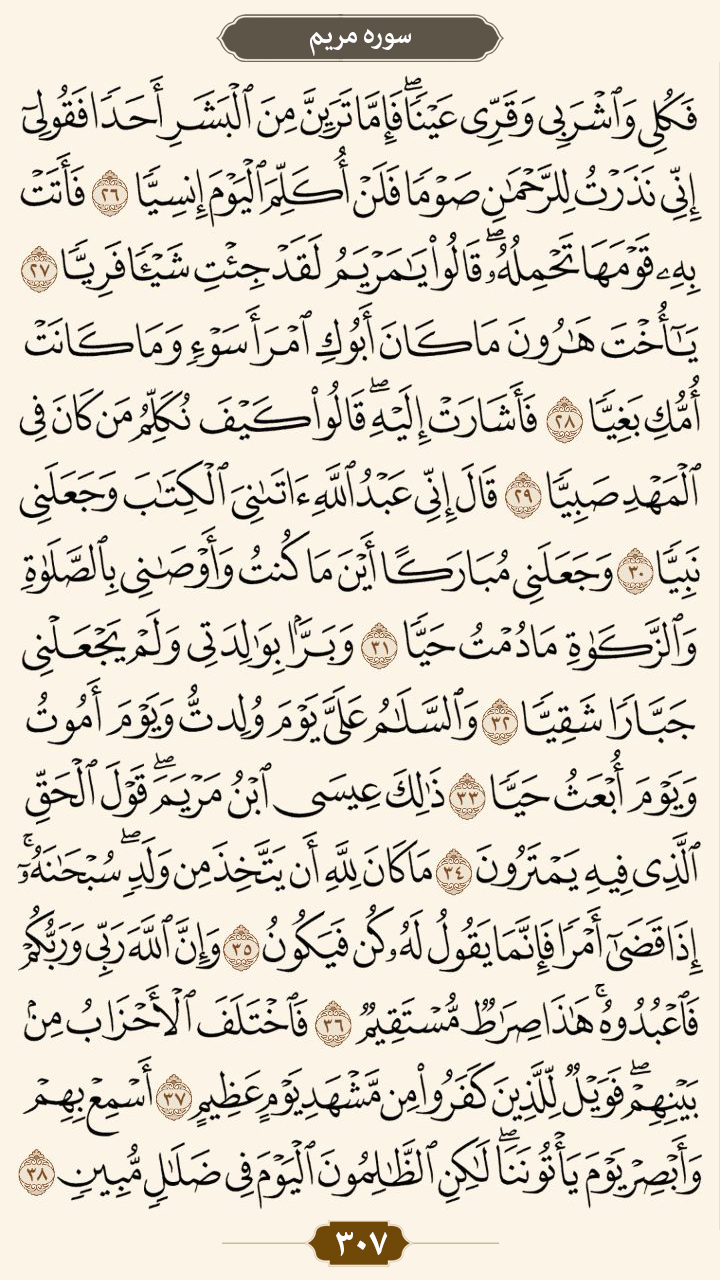 سوره مریم
فَكُلِى وَٱشْرَبِى وَقَرِّى عَيْنًاۖ فَإِمَّا تَرَيِنَّ مِنَ ٱلْبَشَرِ أَحَدًا فَقُولِىٓ
إِنِّى نَذَرْتُ لِلرَّحْمَٰنِ صَوْمًا فَلَنْ أُكَلِّمَ ٱلْيَوْمَ إِنسِيًّا ٢٦ فَأَتَتْ
بِهِۦ قَوْمَهَا تَحْمِلُهُۥۖ قَالُوا۟ يَٰمَرْيَمُ لَقَدْ جِئْتِ شَيْـًٔا فَرِيًّا ٢٧
يَٰٓأُخْتَ هَٰرُونَ مَا كَانَ أَبُوكِ ٱمْرَأَ سَوْءٍ وَمَا كَانَتْ
أُمُّكِ بَغِيًّا ٢٨ فَأَشَارَتْ إِلَيْهِۖ قَالُوا۟ كَيْفَ نُكَلِّمُ مَن كَانَ فِى
ٱلْمَهْدِ صَبِيًّا ٢٩ قَالَ إِنِّى عَبْدُ ٱللَّهِ ءَاتَىٰنِىَ ٱلْكِتَٰبَ وَجَعَلَنِى
نَبِيًّا ٣٠ وَجَعَلَنِى مُبَارَكًا أَيْنَ مَا كُنتُ وَأَوْصَٰنِى بِٱلصَّلَوٰةِ
وَٱلزَّكَوٰةِ مَا دُمْتُ حَيًّا ٣١ وَبَرًّۢا بِوَٰلِدَتِى وَلَمْ يَجْعَلْنِى
جَبَّارًا شَقِيًّا ٣٢ وَٱلسَّلَٰمُ عَلَىَّ يَوْمَ وُلِدتُّ وَيَوْمَ أَمُوتُ
وَيَوْمَ أُبْعَثُ حَيًّا ٣٣ ذَٰلِكَ عِيسَى ٱبْنُ مَرْيَمَۖ قَوْلَ ٱلْحَقِّ
ٱلَّذِى فِيهِ يَمْتَرُونَ ٣٤ مَا كَانَ لِلَّهِ أَن يَتَّخِذَ مِن وَلَدٍۖ سُبْحَٰنَهُۥٓۚ
إِذَا قَضَىٰٓ أَمْرًا فَإِنَّمَا يَقُولُ لَهُۥ كُن فَيَكُونُ ٣٥ وَإِنَّ ٱللَّهَ رَبِّى وَرَبُّكُمْ
فَٱعْبُدُوهُۚ هَٰذَا صِرَٰطٌ مُّسْتَقِيمٌ ٣٦ فَٱخْتَلَفَ ٱلْأَحْزَابُ مِنۢ
بَيْنِهِمْۖ فَوَيْلٌ لِّلَّذِينَ كَفَرُوا۟ مِن مَّشْهَدِ يَوْمٍ عَظِيمٍ ٣٧ أَسْمِعْ بِهِمْ
وَأَبْصِرْ يَوْمَ يَأْتُونَنَاۖ لَٰكِنِ ٱلظَّٰلِمُونَ ٱلْيَوْمَ فِى ضَلَٰلٍ مُّبِينٍ ٣٨
٣٠٧